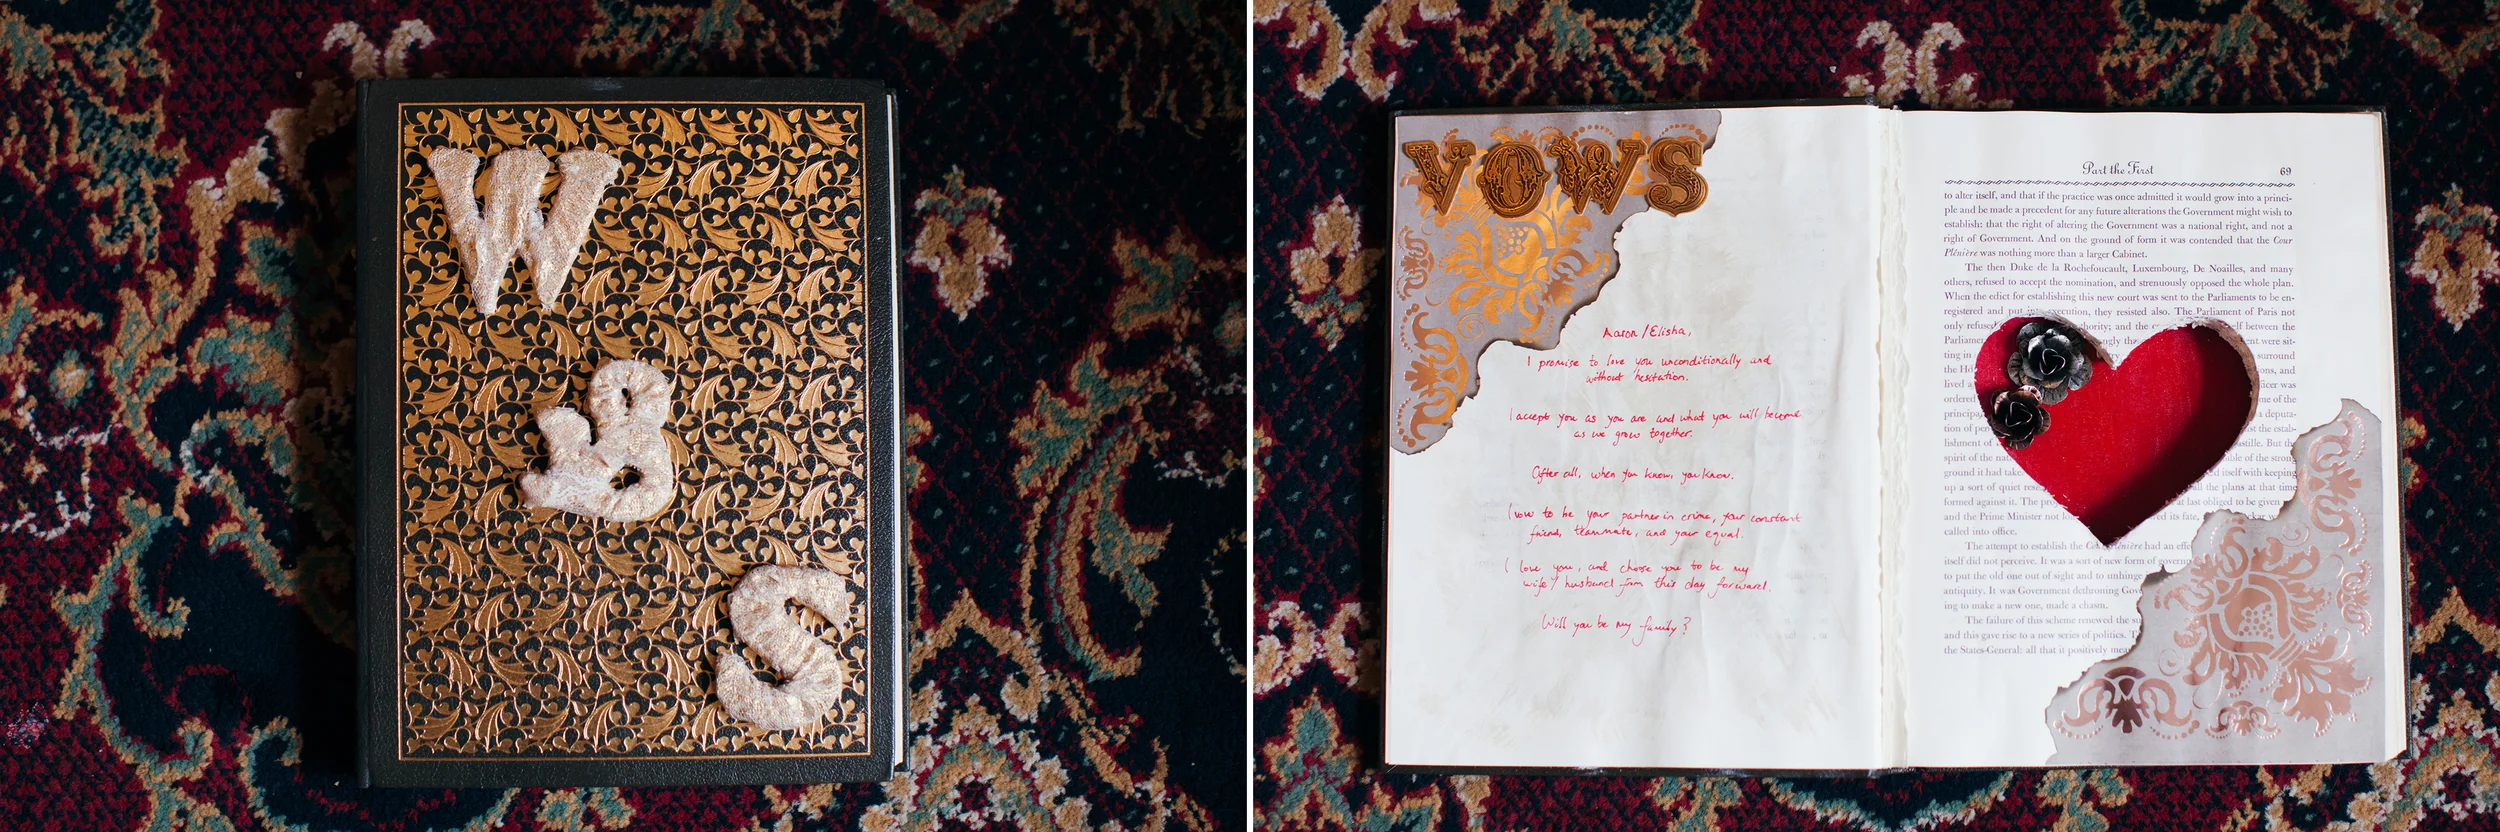 W
&
S
VOWS
Aaron/Elisha,
I promise to love you unconditionally and
without hesitation.
I accept you as you are and what you will become
as we grow together.
After all, when you know, you know.
I vow to be your partner in crime, your constant
friend, teammate, and your equal.
I love you, and choose you to be my
wife/husband from this day forward.
Will you be my family?
Part the First 69
to alter itself, and that if the practice was once admitted it would grow into a princi-
ple and be made a precedent for any future alterations the Government might wish to
establish: that the right of altering the Government was a national right, and not a
right of Government. And on the ground of form it was contended that the Cour
Plénière was nothing more than a larger Cabinet.
The then Duke de la Rochefoucault, Luxembourg, De Noailles, and many
others, refused to accept the nomination, and strenuously opposed the whole plan.
When the edict for establishing this new court was sent to the Parliaments to be en-
registered and put into execution, they resisted also. The Parliament of Paris not
only refused hority; and the itself between the
Parliamen ngly tha ent were sit-
ting in surround
the Ho ons, and
lived a ficer was
ordered me of the
principa a deputa-
tion of per st the estab-
lishment of astille. But the
spirit of the nat ble of the strong
ground it had take d itself with keeping
up a sort of quiet resi all the plans at that time
formed against it. The pro at last obliged to be given
and the Prime Minister not lon ed its fate,
called into office.
The attempt to establish the Cour Plénière had an effe
itself did not perceive. It was a sort of new form of governm
to put the old one out of sight and to unhinge
antiquity. It was Government dethroning Gov
ing to make a new one, made a chasm.
The failure of this scheme renewed the su
and this gave rise to a new series of politics. T
the States-General: all that it positively mea